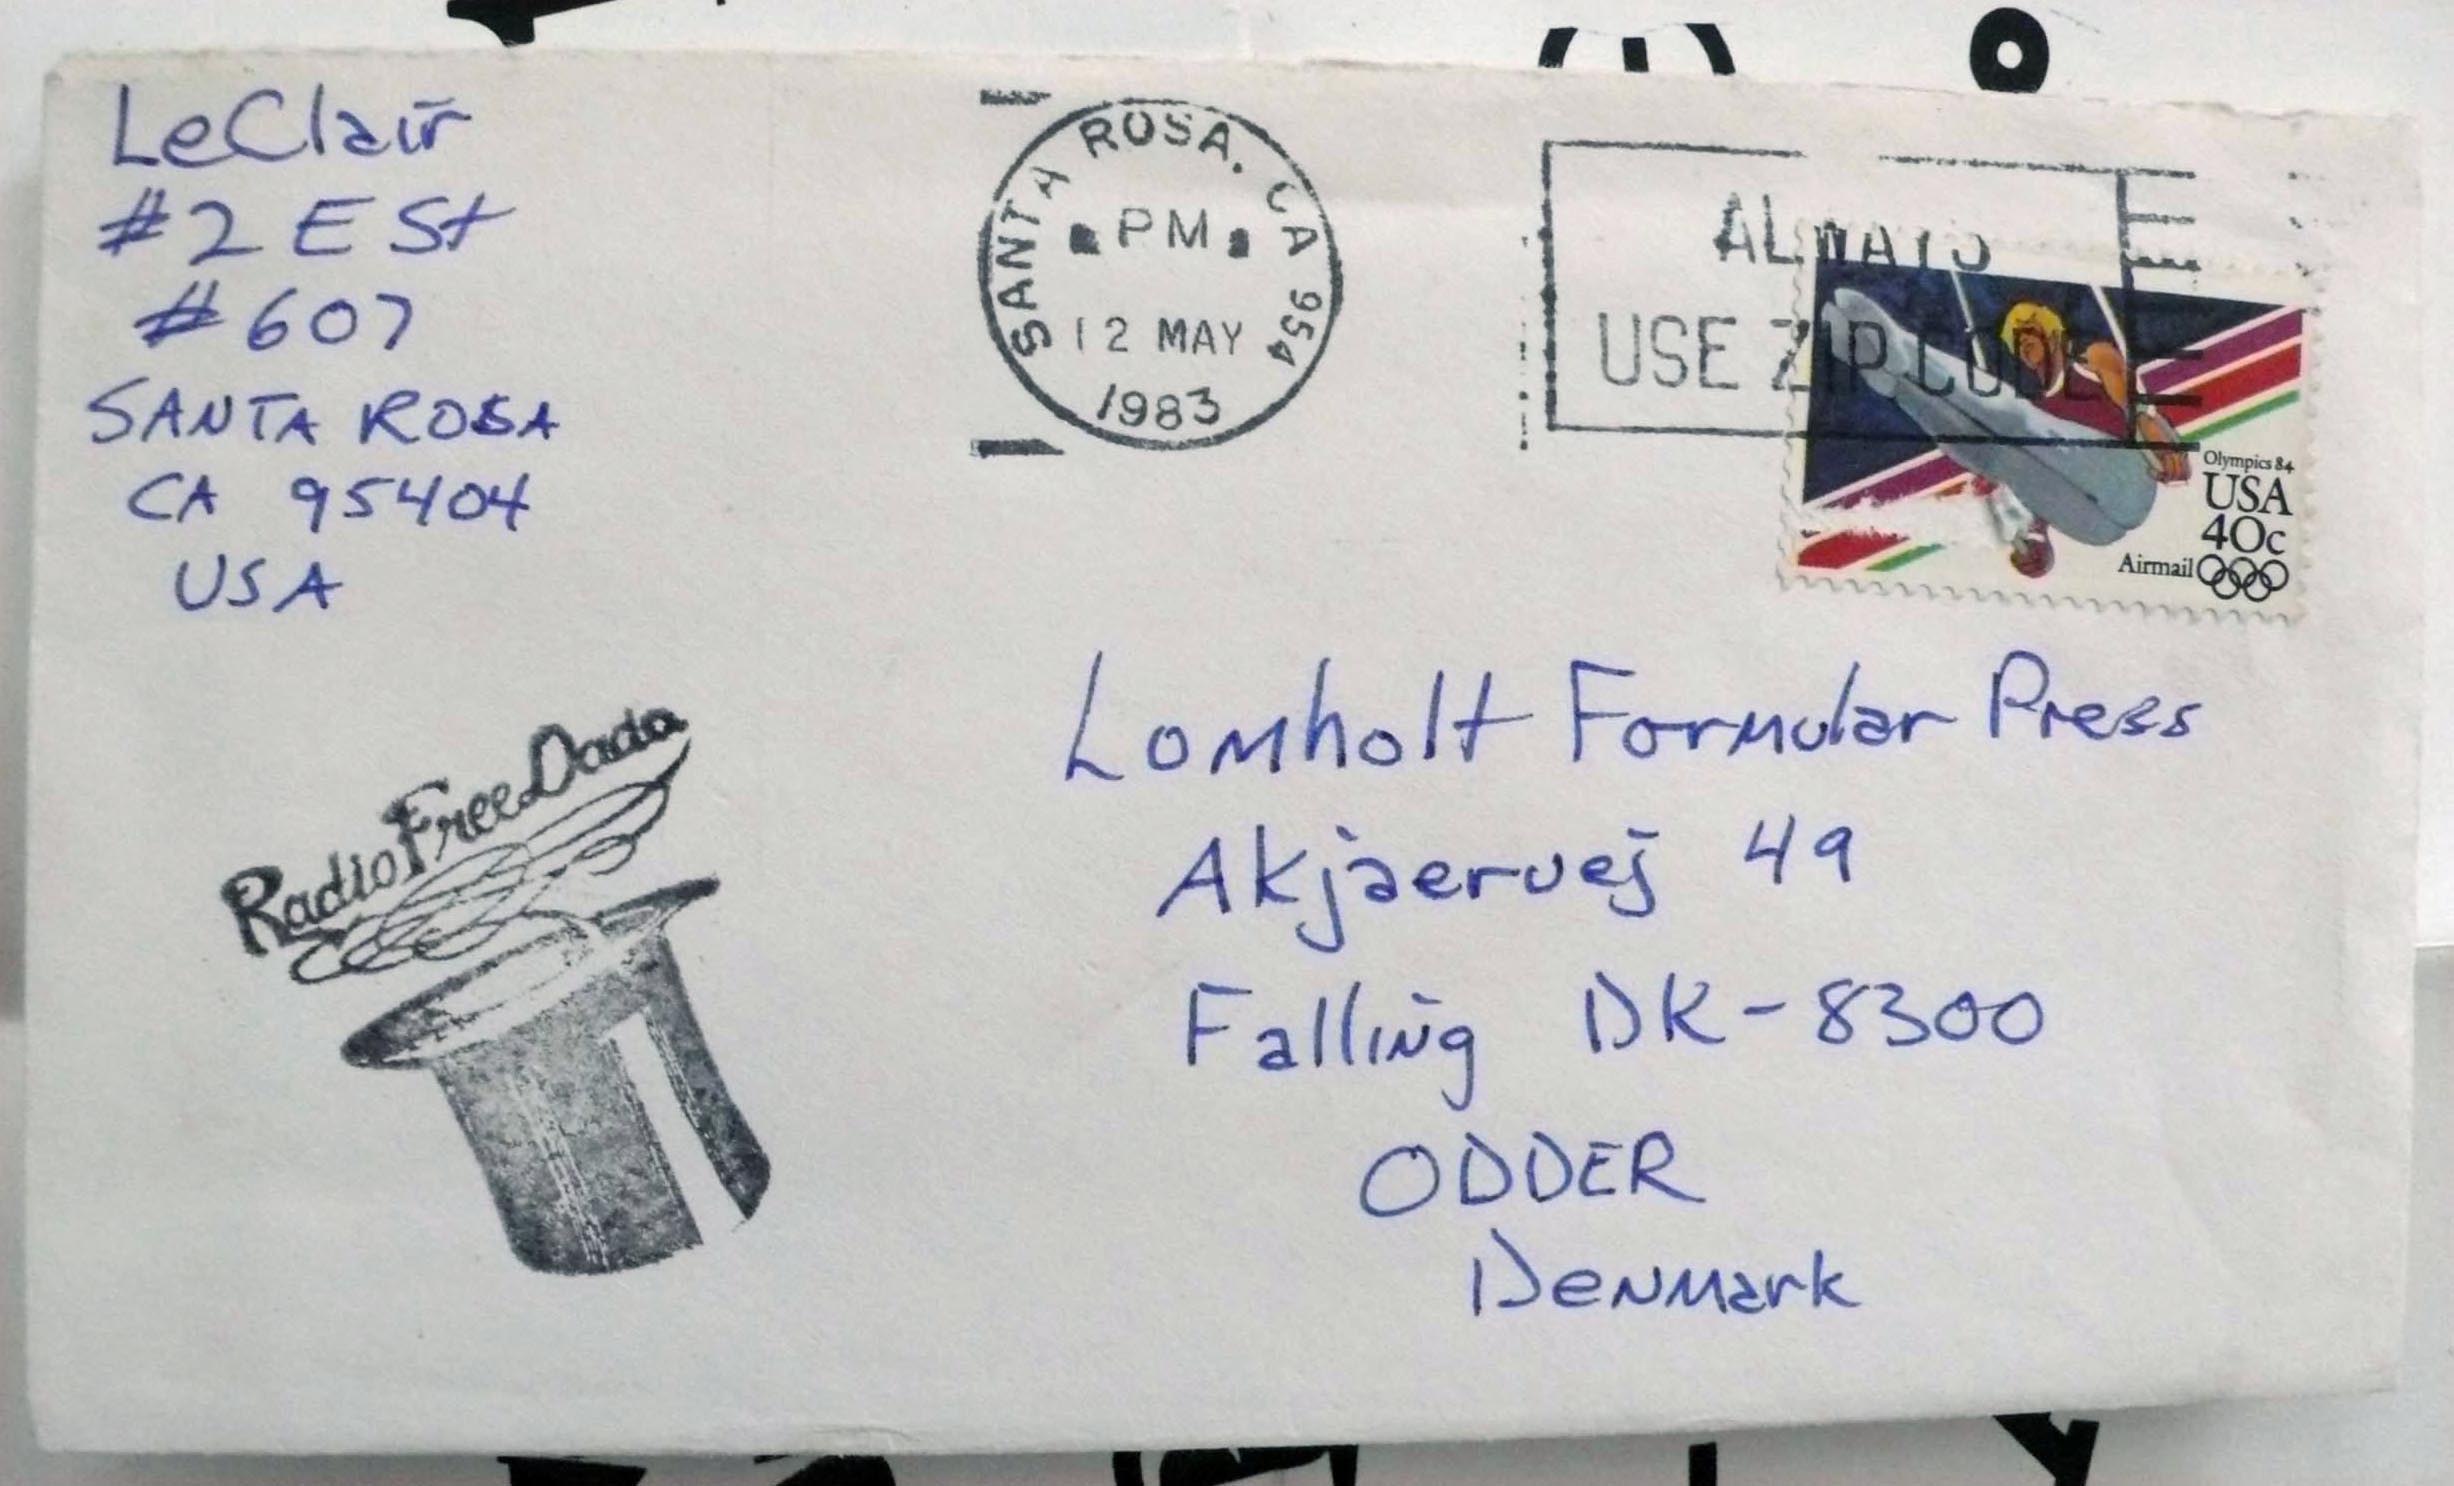 LeClair
#2 E St
#607
SANTA ROSA
CA 95404
USA
SANTA ROSA, CA 954
PM
12 MAY
1983
ALWAYS
USE ZIP CODE
Olympics 84
USA
40c
Airmail
Radio Free Dada
Lomholt Formular Press
Akjaervej 49
Falling DK-8300
ODDER
Denmark